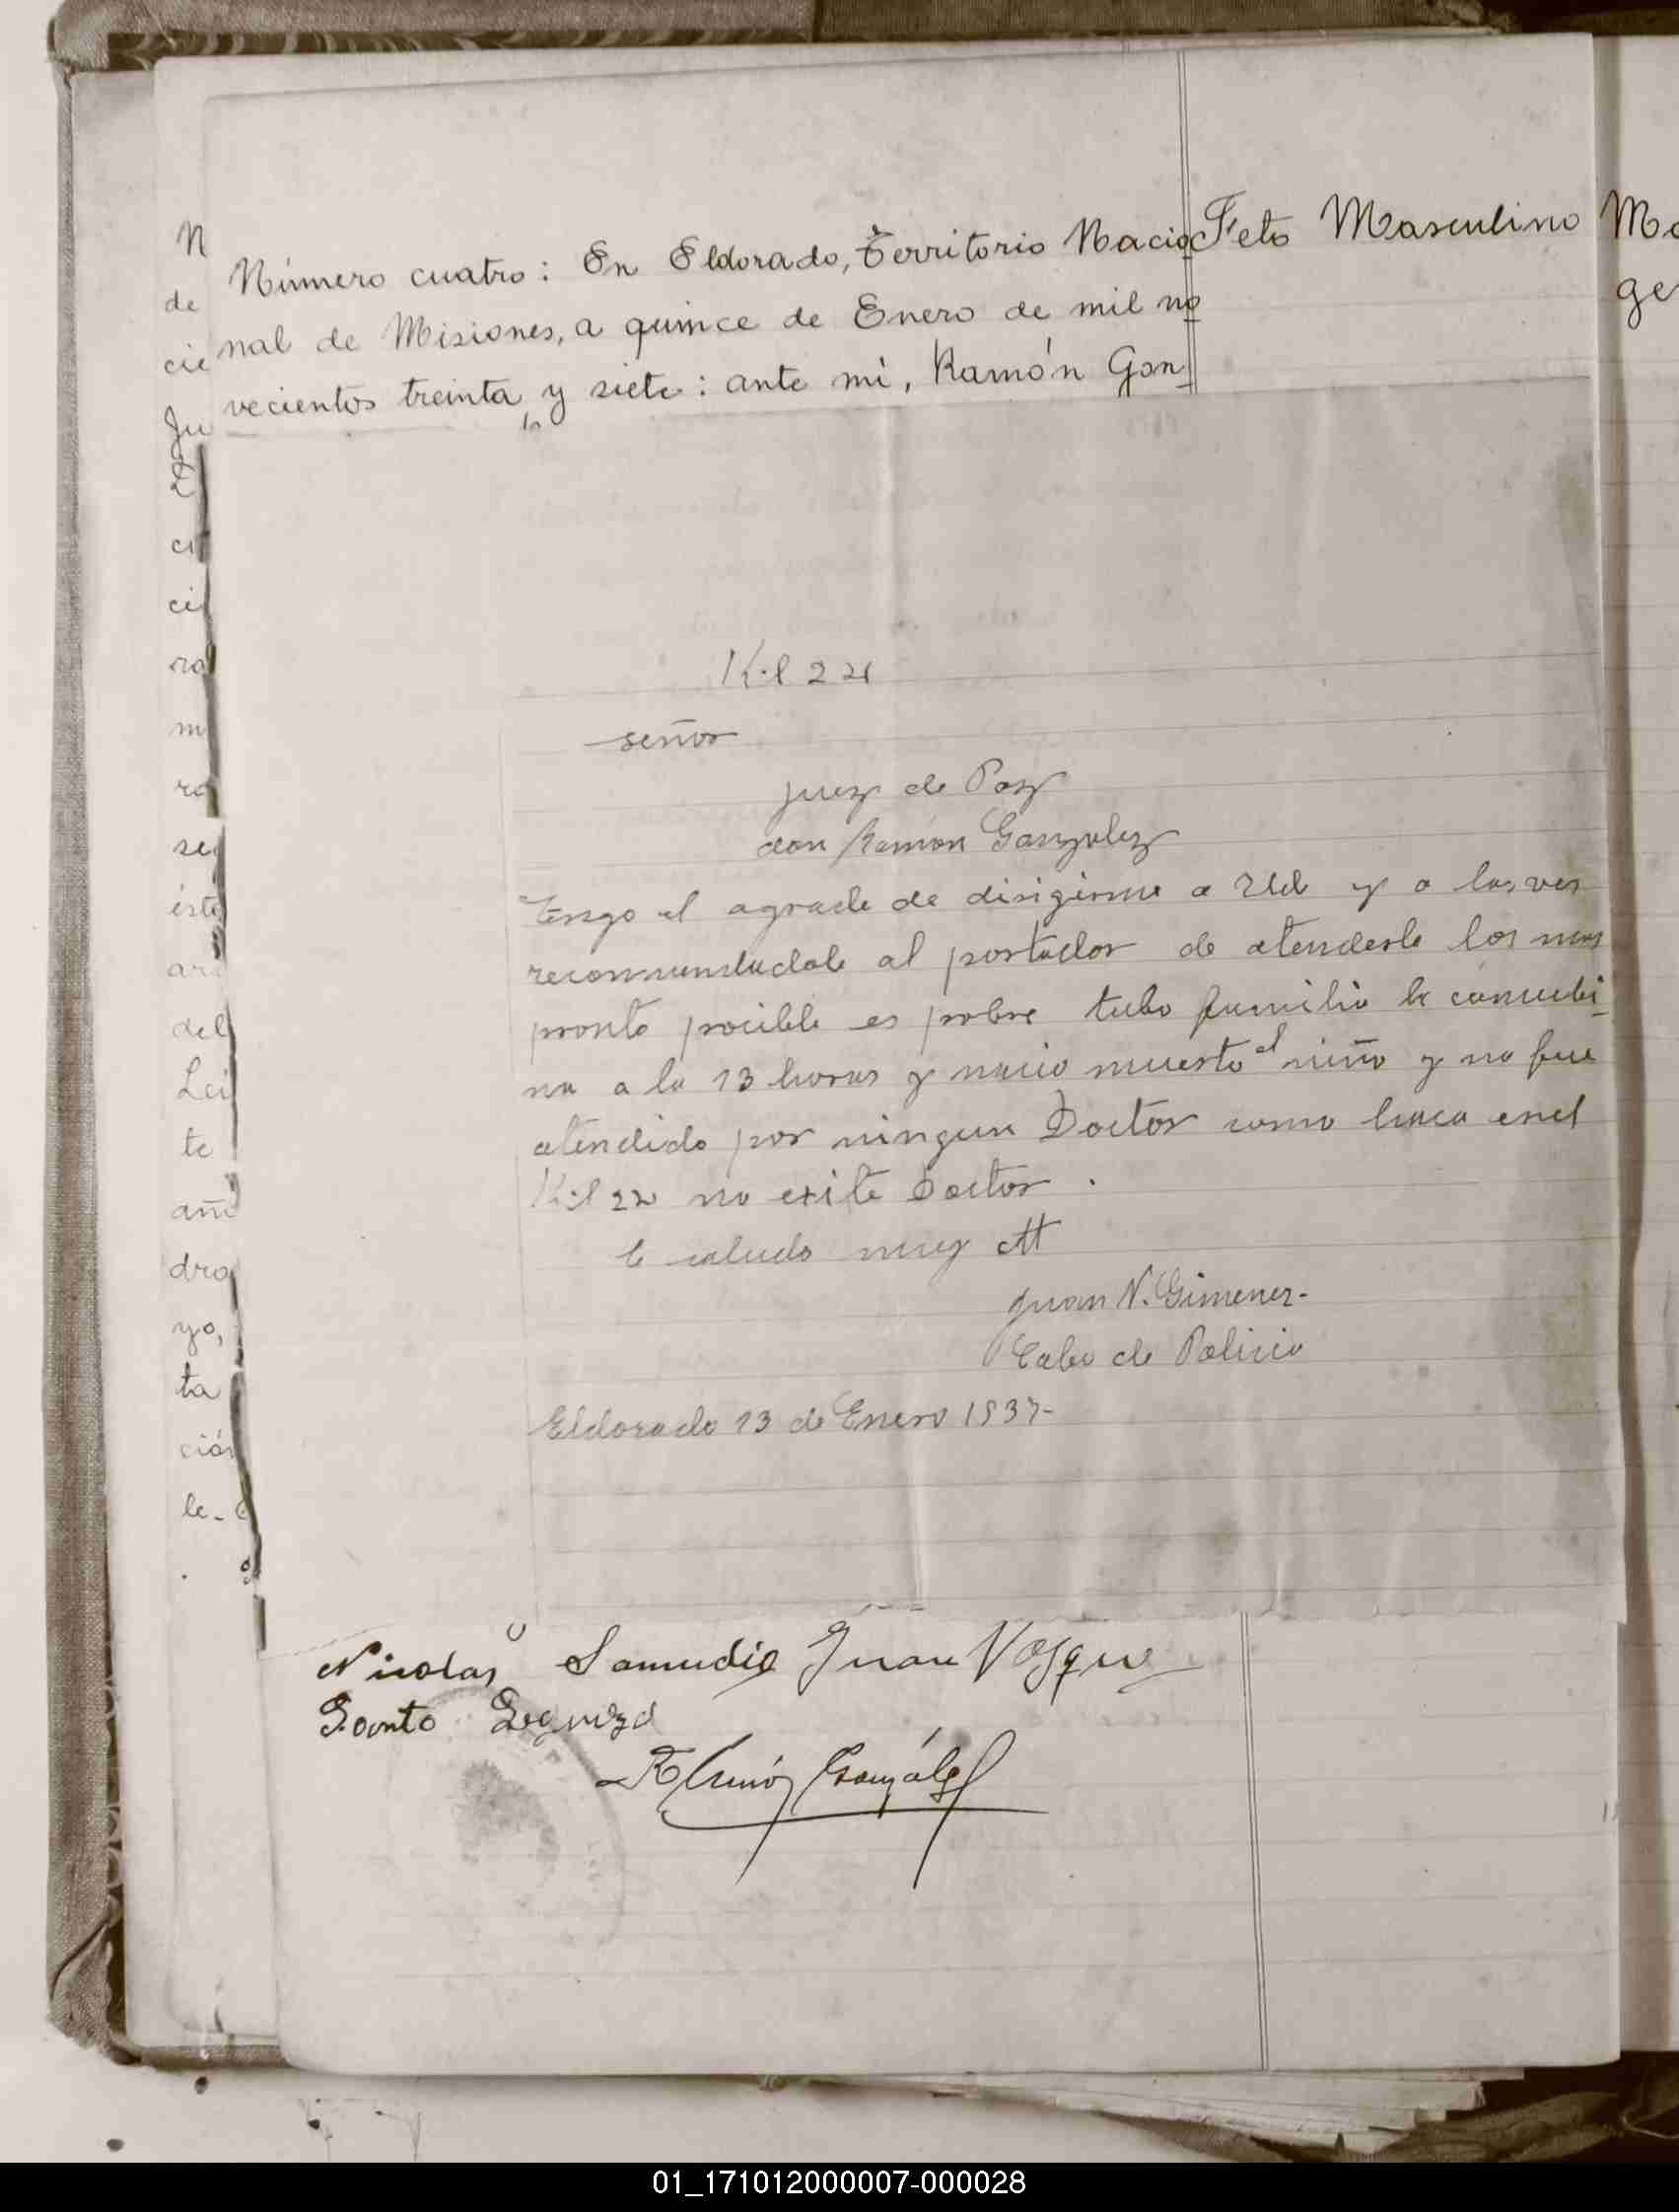 Número cuatro: En Eldorado, Territorio Nacio
nal de Misiones, a quince de Enero de mil no
vecientos treinta y siete: ante mí, Ramón Gon
Feto Masculino
Ma
ge
N
de
cie
Ju
ci
ra
m
ra
se
éste
ar
del
Lei
te
añ
dro
yo,
ta
ción
le-
Kil 22
señor
juez de Paz
don Ramon Gonzalez
Tengo el agrade de dirigirme a Ud y a las ves
recomendadole al portador de atenderle los mas
pronto pocible es pobre tubo familia la concubi
na a la 13 horas y nacio muerto el niño y no fue
atendido por ningun Doctor como haca en el
Kil 22 no exite Doctor.
le saludo muy att
Juan N. Gimenez-
Cabo de Policia
Eldorado 13 de Enero 1937-
Nicolas Samudio Juan Vasque
Santo
Ramón González
01_171012000007-000028